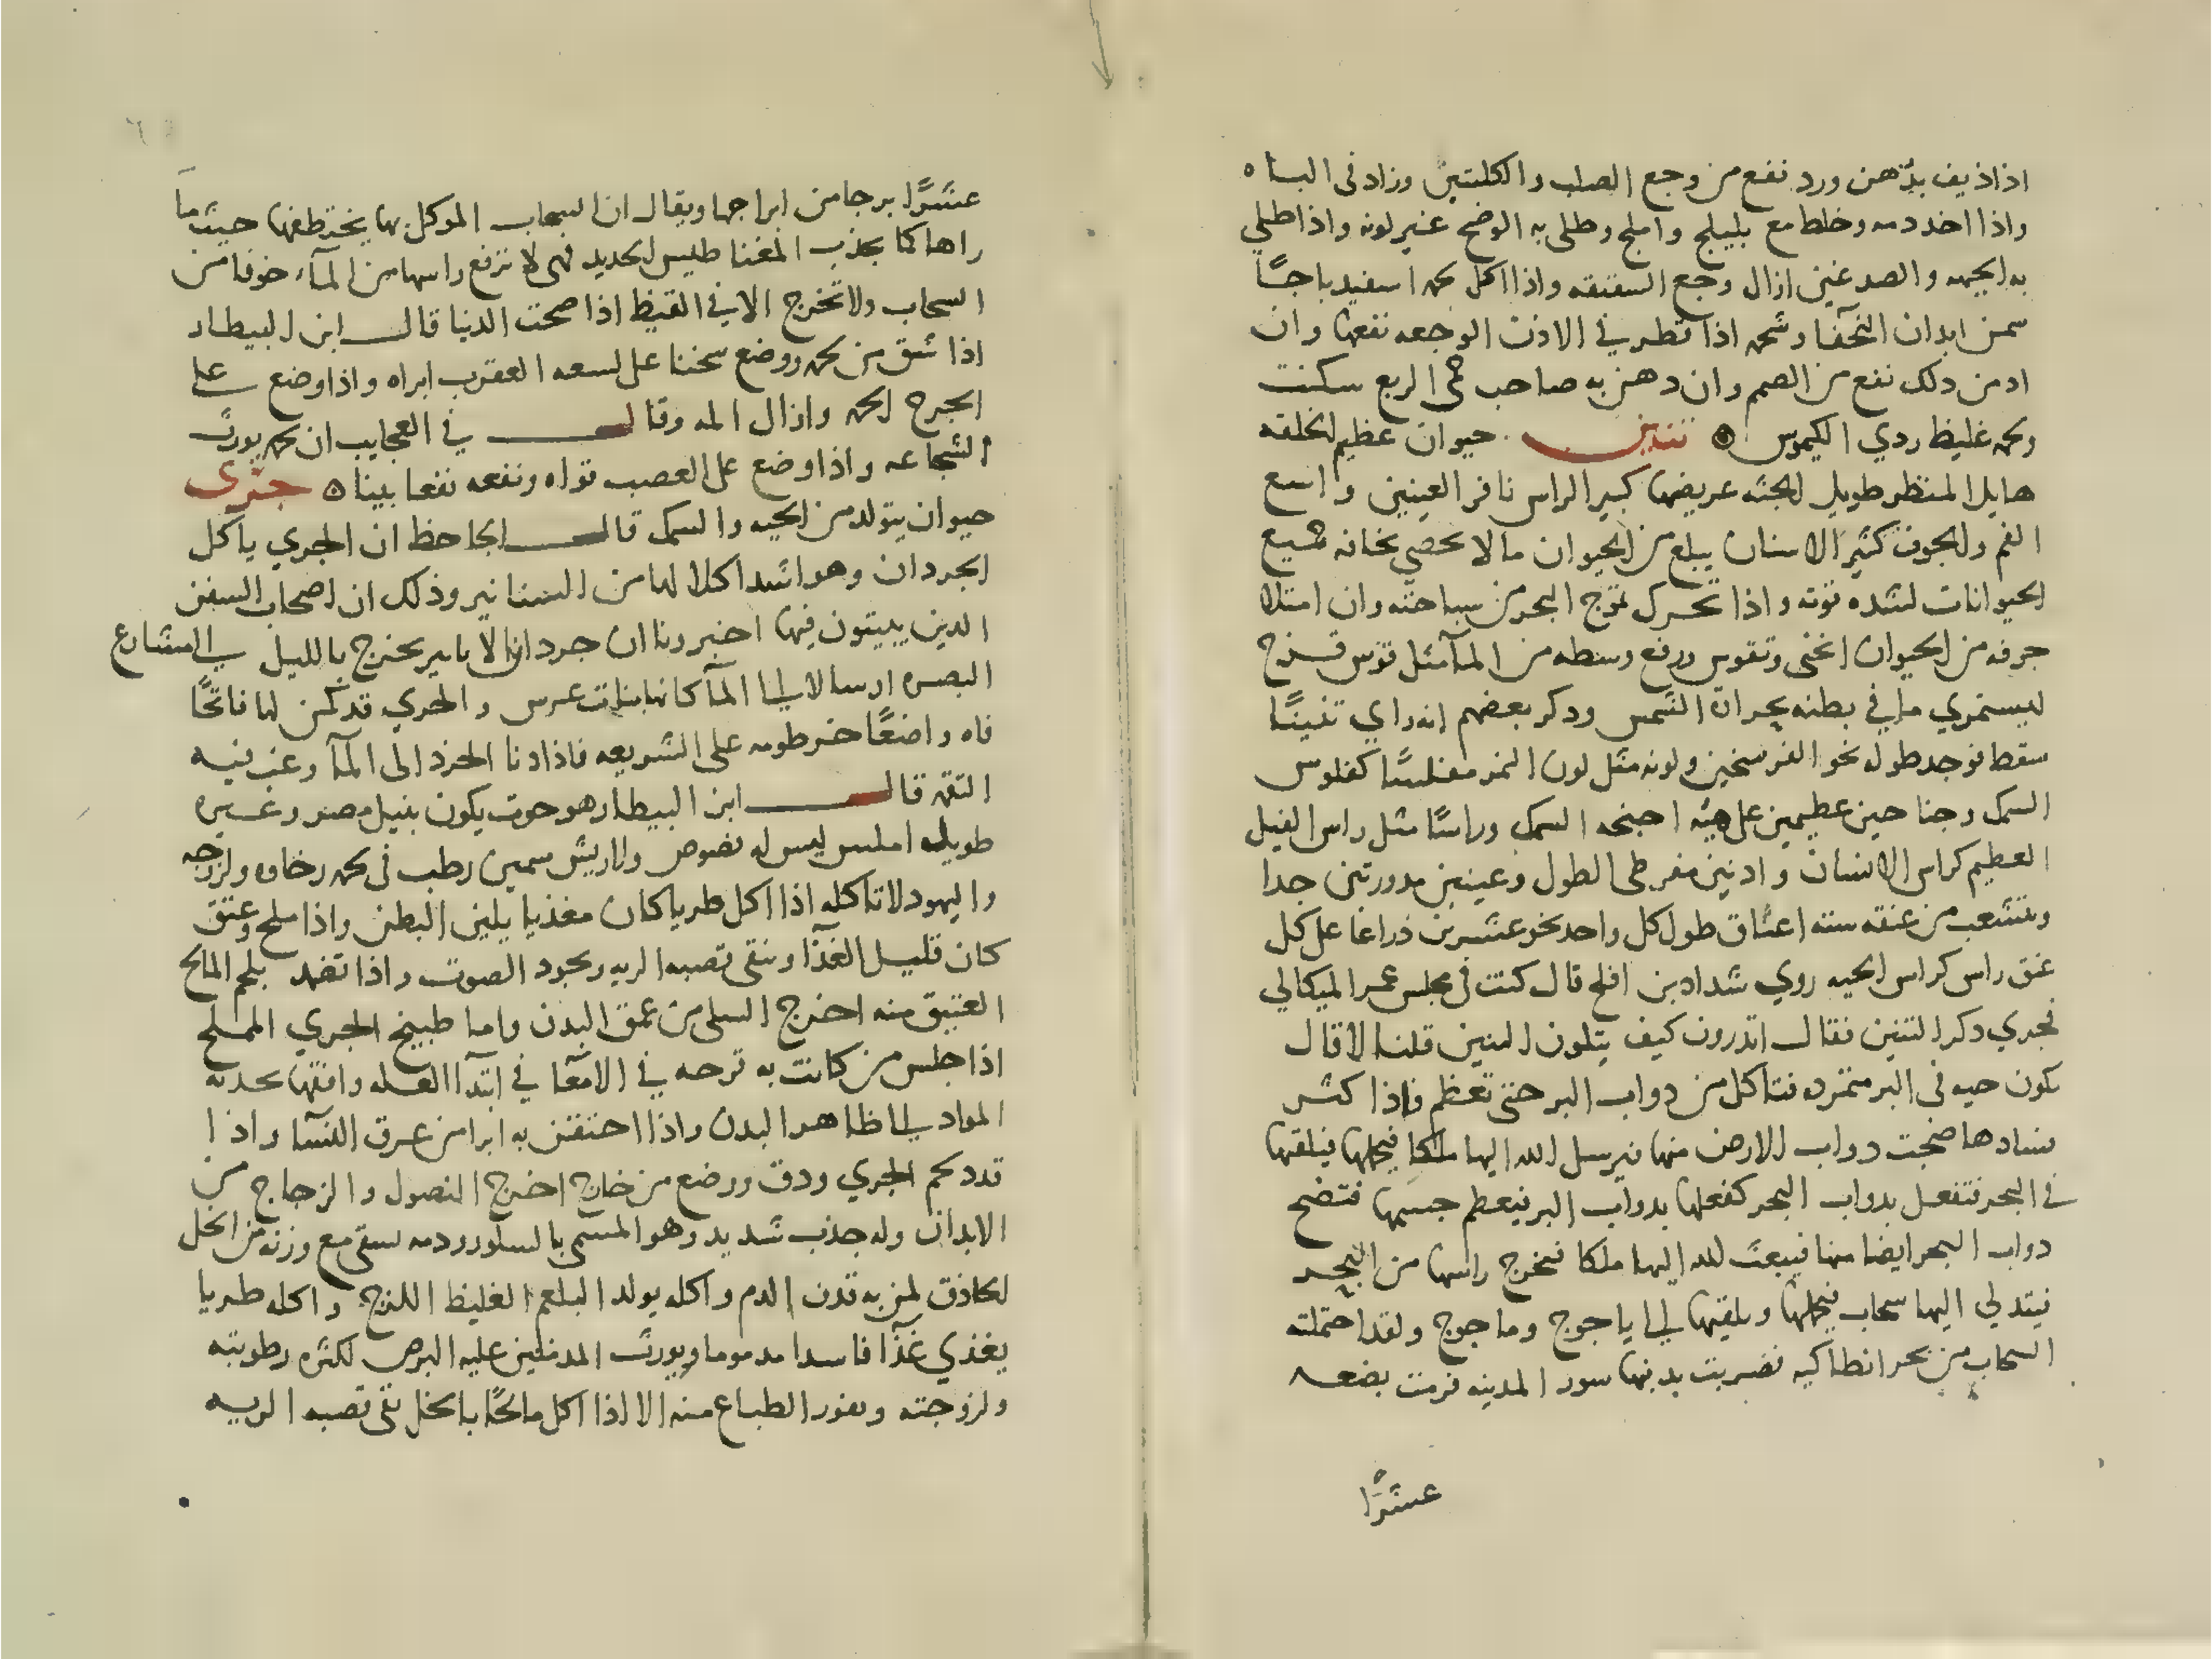 اذا ذيف بدهن ورد نفع من وجع الصلب والكليتين وزاد في الباه
واذا اخد دمه وخلط مع بليلج واملج وطلى به الوضح غير لونه واذا طلي
به الجبهه والصدغين ازال وجع الشقيقه واذا اكل لحمه اسفيدباجًا
سمن ابدان النحفا وشحمه اذا قطر في الاذن الوجعه نفعها وان
ادمن دلك نفع من الصمم وان دهن به صاحب حمى الربع سكنت
ولحمه غليظ ردي الكيموس تنين حيوان عظيم الخلقه
هايل المنظر طويل الجثه عريضها كبير الراس نافر العينين واسع
الفم والجوف كثير الاسنان يبلع من الحيوان ما لا يحصى يخافه جميع
الحيوانات لشده قوته واذا تحرك تموج البحر من سباحته وان امتلا
جوفه من الحيوان انحنى وتقوس ورفع وسطه من المآ مثل قوس قزح
ليستمري ما في بطنه بحرارة الشمس ودكر بعضهم انه راي تنينًا
سقط فوجد طوله نحو الفرسخين ولونه مثل لون النمر مفلسًا كفلوس
السمك وجناحين عظيمين على هيئه اجنحه السمك وراسًا مثل راس الفيل
العظيم كراس الانسان وادنين مفرطى الطول وعينين مدورتين جدا
وتتشعب من عنقه سته اعناق طول كل واحد نحو عشرين ذراعا على كل
عنق راس كراس الحيه روي شداد بن افلح قال كنت في مجلس عمر الميكالي
فجري دكر التنين فقال اتدرون كيف يتلون التنين قلنا لا قال
يكون حيه في البر متمرده فتاكل من دواب البر حتى تعظم فاذا كثر
فسادها ضجت دواب الارض منها فيرسل الله اليها ملكا فيحملها فيلقيها
في البحر فتفعل بدواب البحر كفعلها بدواب البر فيعظم جسمها فتضج
دواب البحر ايضا منها فيبعث الله اليها ملكا فيخرج راسها من البحر
فيتدلي اليها سحاب فيحملها ويلقيها الي ياجوج وماجوج ولقد احتملته
السحاب من بحر انطاكيه فضربت بدنبها سور المدينه فرمت بضعه
عشرًا
عشرًا برجا من ابراجها ويقال ان السحاب الموكل بها يختطفها حيث ما
راها كما يجذب المغناطيس الحديد فهى لا ترفع راسها من المآء خوفا من
السحاب ولا تخرج الا في القيظ اذا صحت الدنيا قال ابن البيطار
اذا شق من لحمه ووضع سخنا على لسعه العقرب ابراه واذا وضع على
الجرح الحمه وازال المه وقال في العجايب ان لحمه يورث
الشجاعه واذا وضع على العصب قواه ونفعه نفعا بينا جرى
حيوان يتولد من الحيه والسمك قال الجاحظ ان الجري ياكل
الجردان وهو اشد اكلا لها من السنانير وذلك ان اصحاب السفن
الدين يبيتون فيها اخبرونا ان جردان الانابير يخرج بالليل الي مشارع
البصره ارسالا الي المآ كانها بنات عرس والجري قد كمن لها فاتحًا
فاه واضعًا خرطومه على الشريعه فاذا دنا الجرذ الى المآ وعب فيه
التقمه قال ابن البيطار هو حوت يكون بنيل مصر وغيره
طويله املس ليس له فصوص ولا ريش سمين رطب في لحمه رخاوه ولزوجه
واليهود لا تاكله اذا اكل طريا كان مغذيا يلين البطن واذا ملح وعتق
كان قليل الغذآ وينقى قصبه الريه ويجود الصوت واذا تضمد بلحم المالح
العتيق منه اخرج السلى من عمق البدن واما طبيخ الجري المملح
اذا جلس من كانت به قرحه في الامعا في ابتدآ العله وافقها بجدبه
المواد الي ظاهر البدن واذا احتقن به ابرا من عرق النسآ واذا
قدد لحم الجري ودق ووضع من خارج اخرج النصول والزجاج من
الابدان وله جذب شديد وهو المسمى بالسلور ودمه يسقى مع وزنه من الخل
الحاذق لمن به قذف الدم واكله يولد البلغم الغليظ اللزج واكله طريا
يغذي غذآ فاسدا مدموما ويورث المدمنين عليه البرص لكثره رطوبته
ولزوجته ونفور الطباع منه الا اذا اكل مالحًا بالخل نقى قصبه الريه